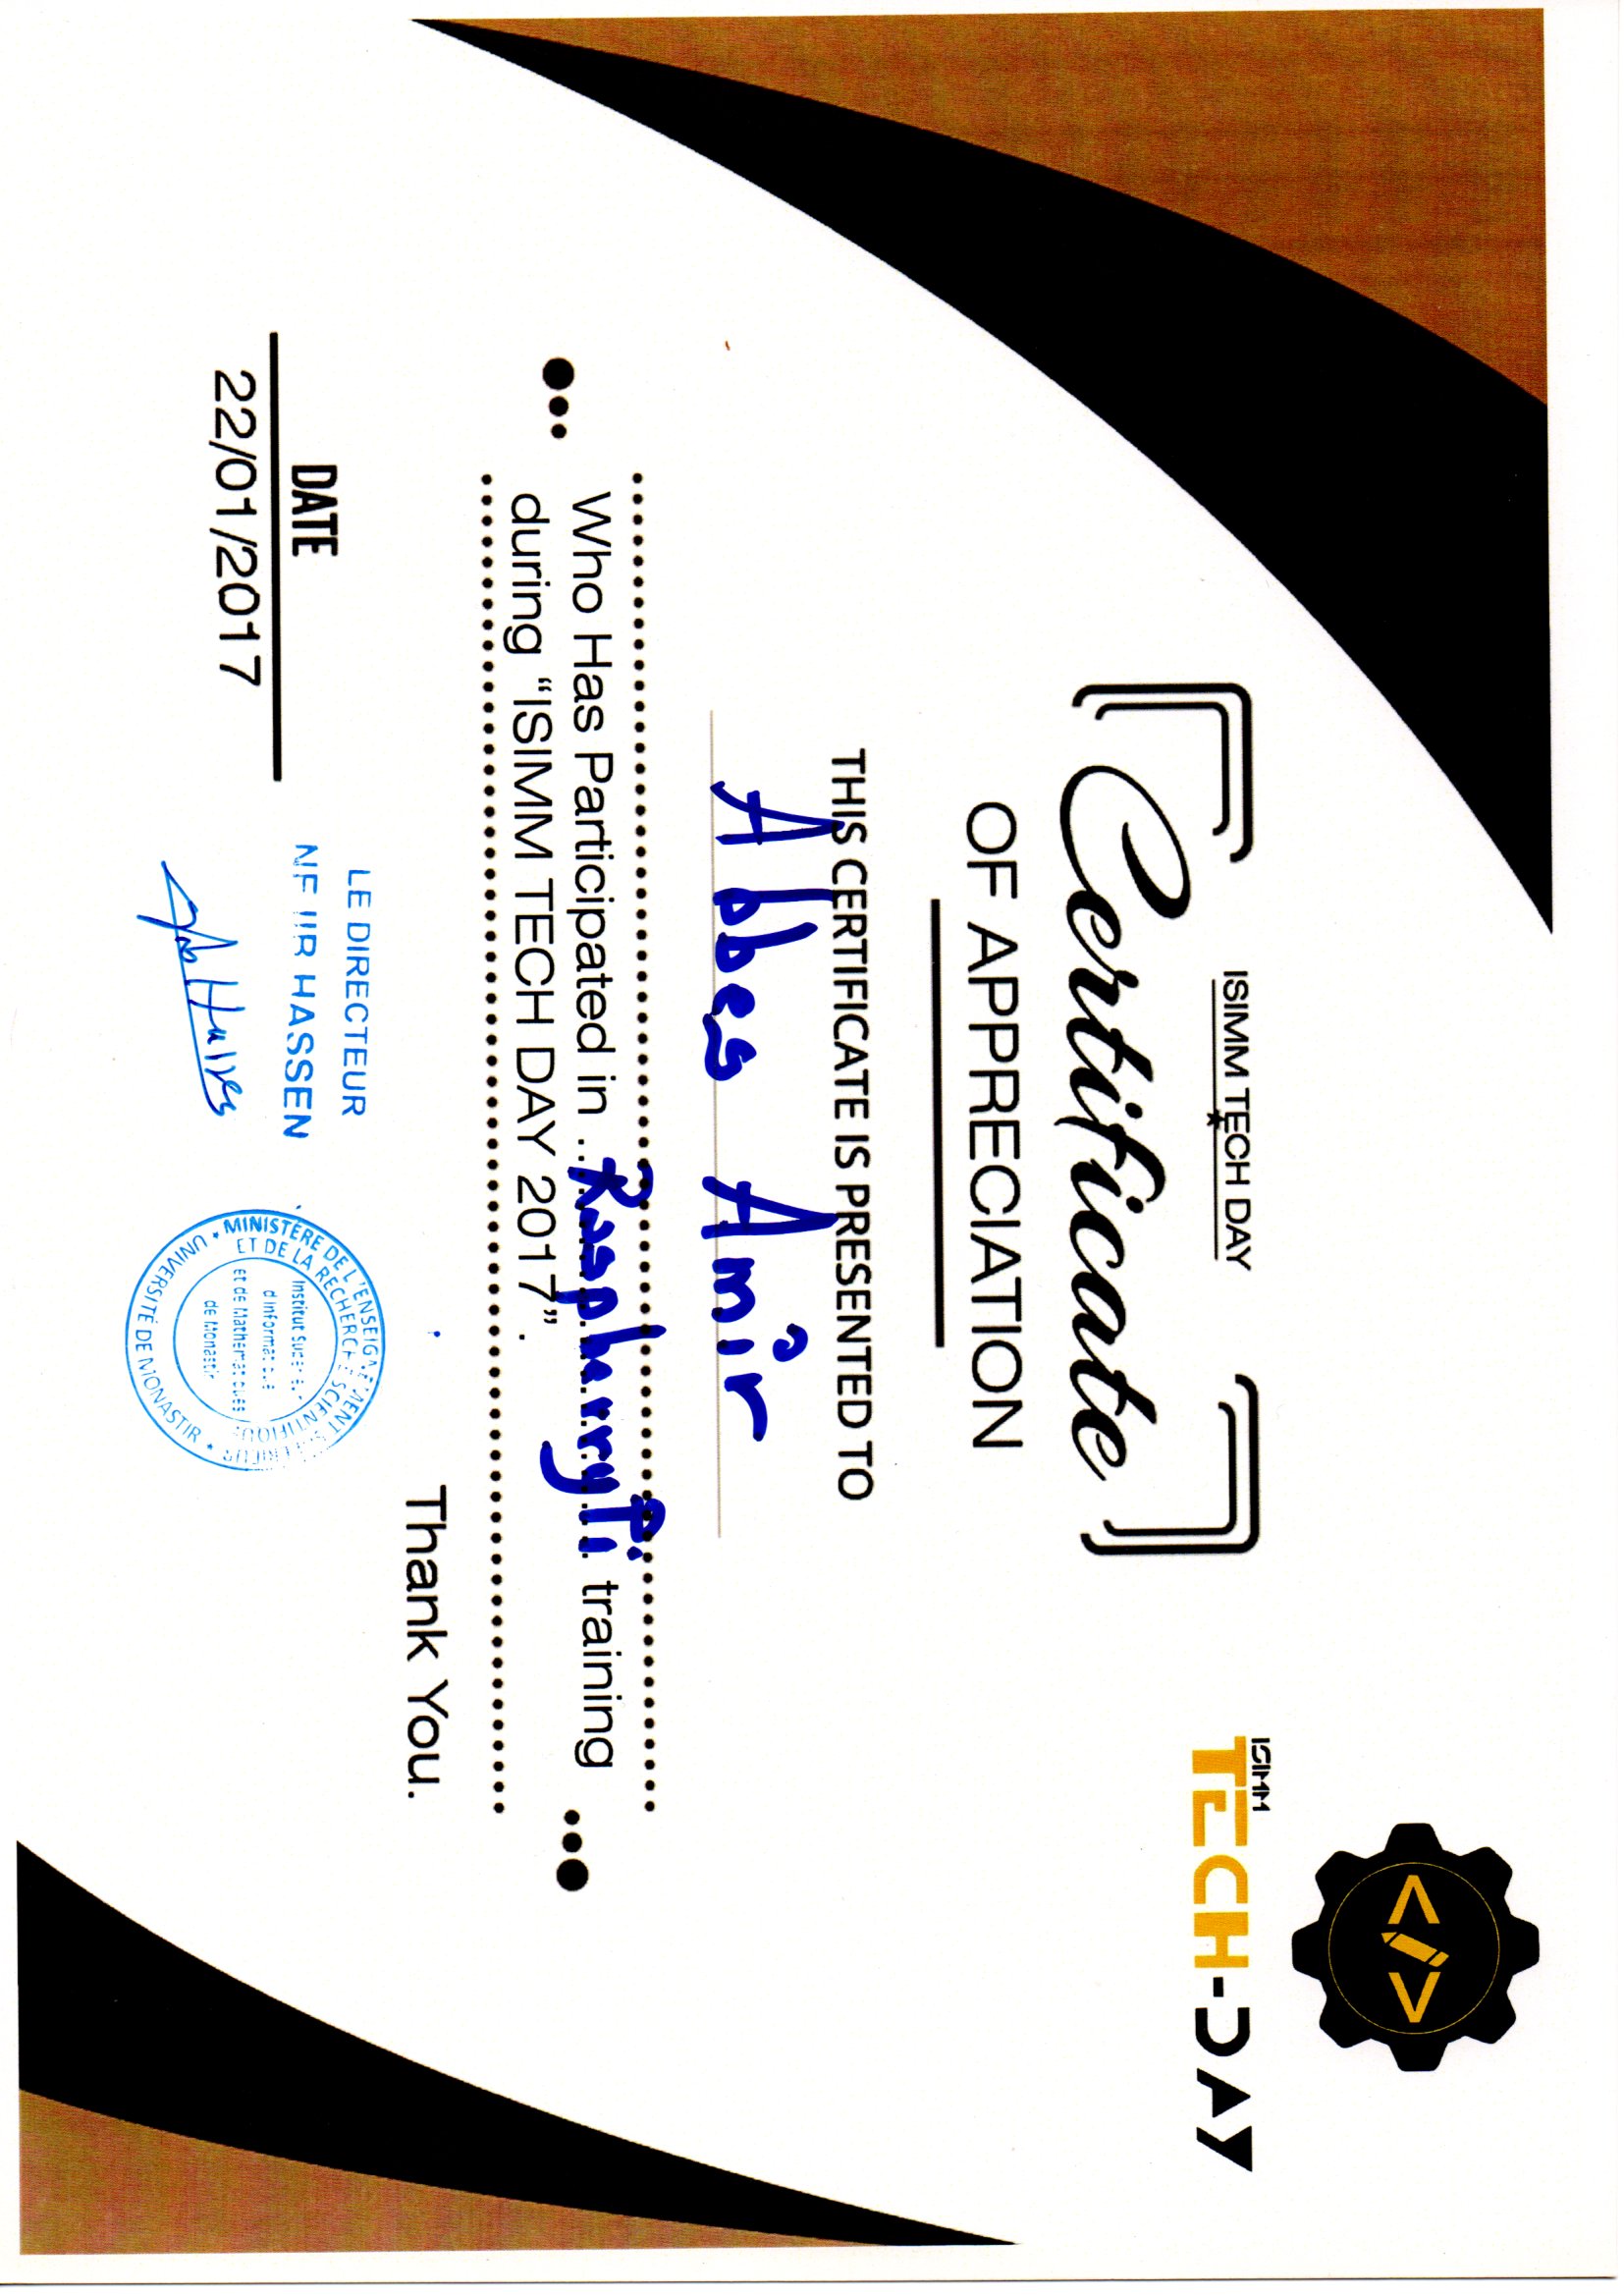 ISIMM
TECH-DAY
ISIMM TECH DAY
Certificate
OF APPRECIATION
THIS CERTIFICATE IS PRESENTED TO
Abbes Amir
Who Has Participated in .. RaspberryPi training
during “ISIMM TECH DAY 2017”.
Thank You.
DATE
22/01/2017
LE DIRECTEUR
HASSEN
MINISTÈRE DE L'ENSEIGNEMENT
ET DE LA RECHERCHE SCIENTIFIQUE
Institut Supérieur
d'Informatique
et de Mathématiques
de Monastir
UNIVERSITÉ DE MONASTIR